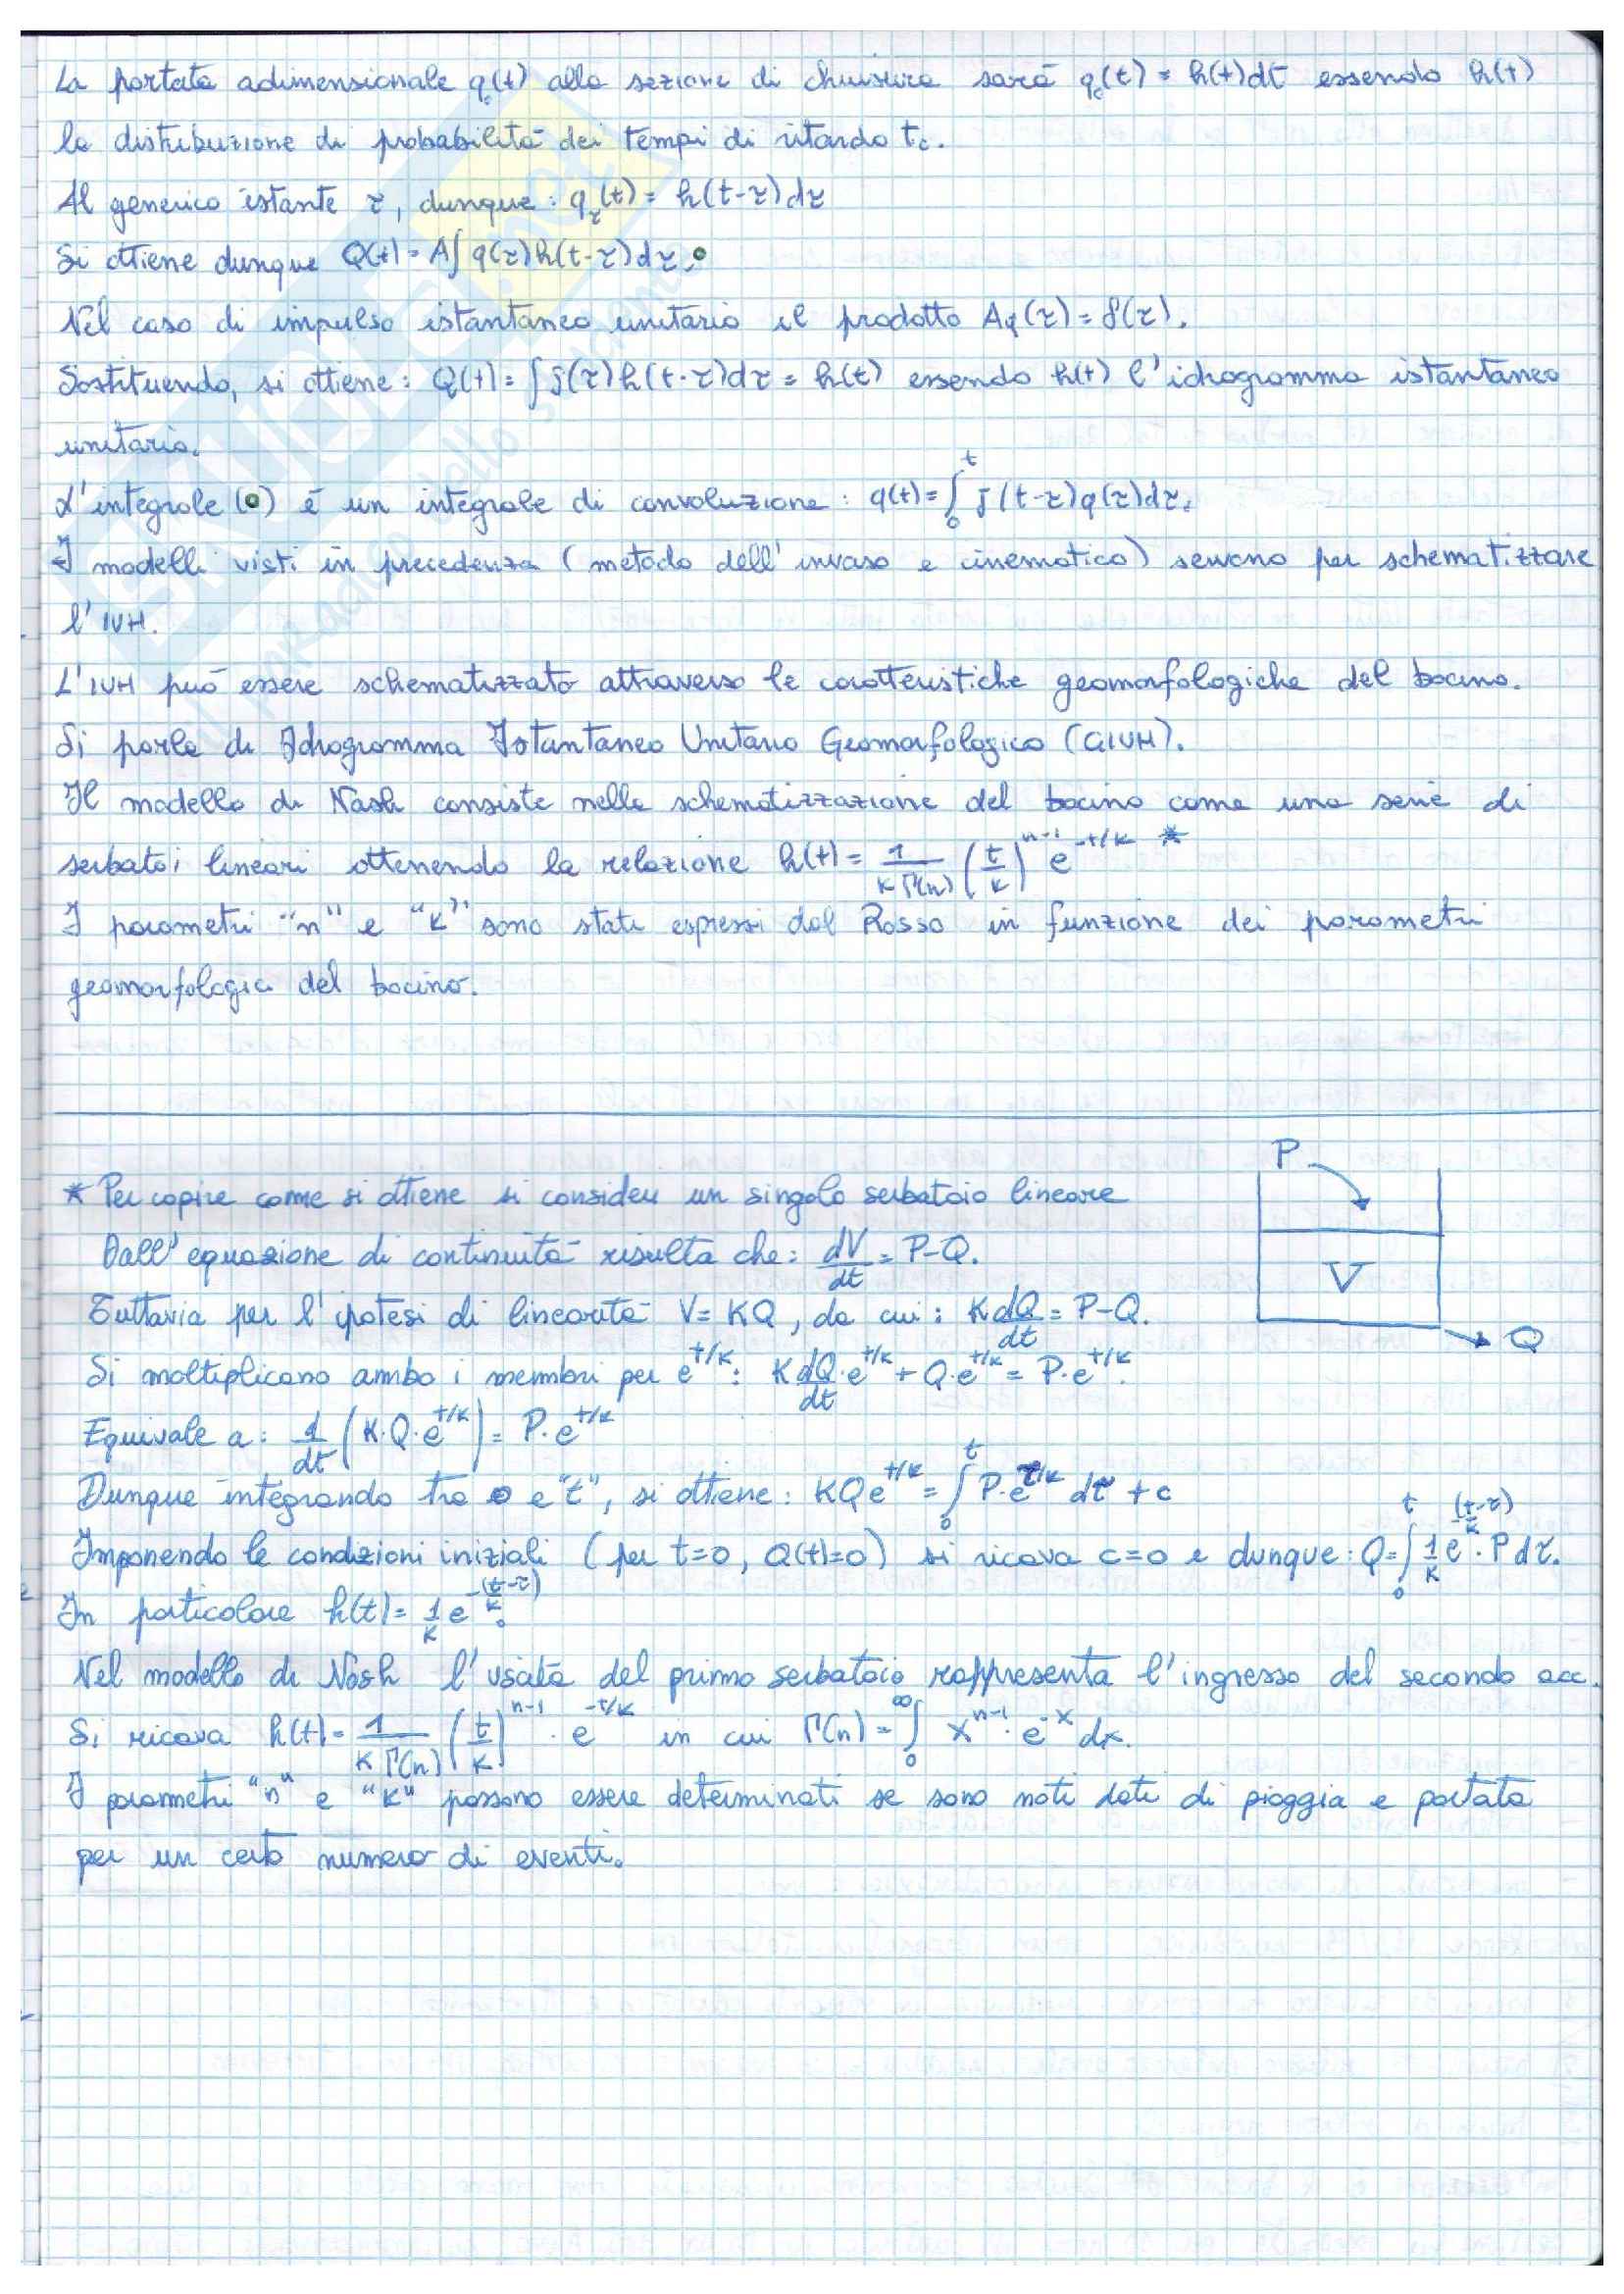 La portata adimensionale q₀(t) alla sezione di chiusura sarà q₀(t) = h(t)dt essendo h(t)
la distribuzione di probabilità dei tempi di ritardo tc.
Al generico istante τ, dunque: qτ(t) = h(t-τ)dτ
Si ottiene dunque Q(t) = A∫ q(τ)h(t-τ)dτ.
Nel caso di impulso istantaneo unitario il prodotto Aq(τ) = δ(τ).
Sostituendo, si ottiene: Q(t) = ∫ δ(τ)h(t-τ)dτ = h(t) essendo h(t) l'idrogramma istantaneo
unitario.
L'integrale (•) è un integrale di convoluzione: q(t) = ∫₀ᵗ j(t-τ)q(τ)dτ.
I modelli visti in precedenza (metodo dell'invaso e cinematico) servono per schematizzare
l'IUH.
L'IUH può essere schematizzato attraverso le caratteristiche geomorfologiche del bacino.
Si parla di Idrogramma Istantaneo Unitario Geomorfologico (GIUH).
Il modello di Nash consiste nella schematizzazione del bacino come una serie di
serbatoi lineari ottenendo la relazione h(t) = 1/(K Γ(n)) (t/K)^(n-1) e^(-t/K) *
I parametri "n" e "K" sono stati espressi dal Rosso in funzione dei parametri
geomorfologici del bacino.
P
* Per capire come si ottiene si consideri un singolo serbatoio lineare
Dall'equazione di continuità risulta che: dV/dt = P-Q.
V
Tuttavia per l'ipotesi di linearità V = KQ, da cui: K dQ/dt = P-Q.
Q
Si moltiplicano ambo i membri per e^(t/K): K dQ/dt · e^(t/K) + Q·e^(t/K) = P·e^(t/K).
Equivale a: 1/dt (K·Q·e^(t/K)) = P·e^(t/K)
Dunque integrando tra 0 e "t", si ottiene: KQe^(t/K) = ∫₀ᵗ P·e^(τ/K) dτ + c
Imponendo le condizioni iniziali (per t=0, Q(t)=0) si ricava c=0 e dunque: Q = ∫₀ᵗ 1/K e^(-(t-τ)/K) · P dτ.
In particolare h(t) = 1/K e^(-(t-τ)/K).
Nel modello di Nash l'uscita del primo serbatoio rappresenta l'ingresso del secondo ecc.
Si ricava h(t) = 1/(K Γ(n)) (t/K)^(n-1) · e^(-t/K) in cui Γ(n) = ∫₀^∞ x^(n-1) · e^(-x) dx.
I parametri "n" e "K" possono essere determinati se sono noti dati di pioggia e portata
per un certo numero di eventi.